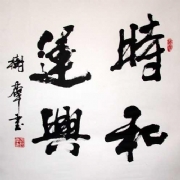 時和
運興
樹群書